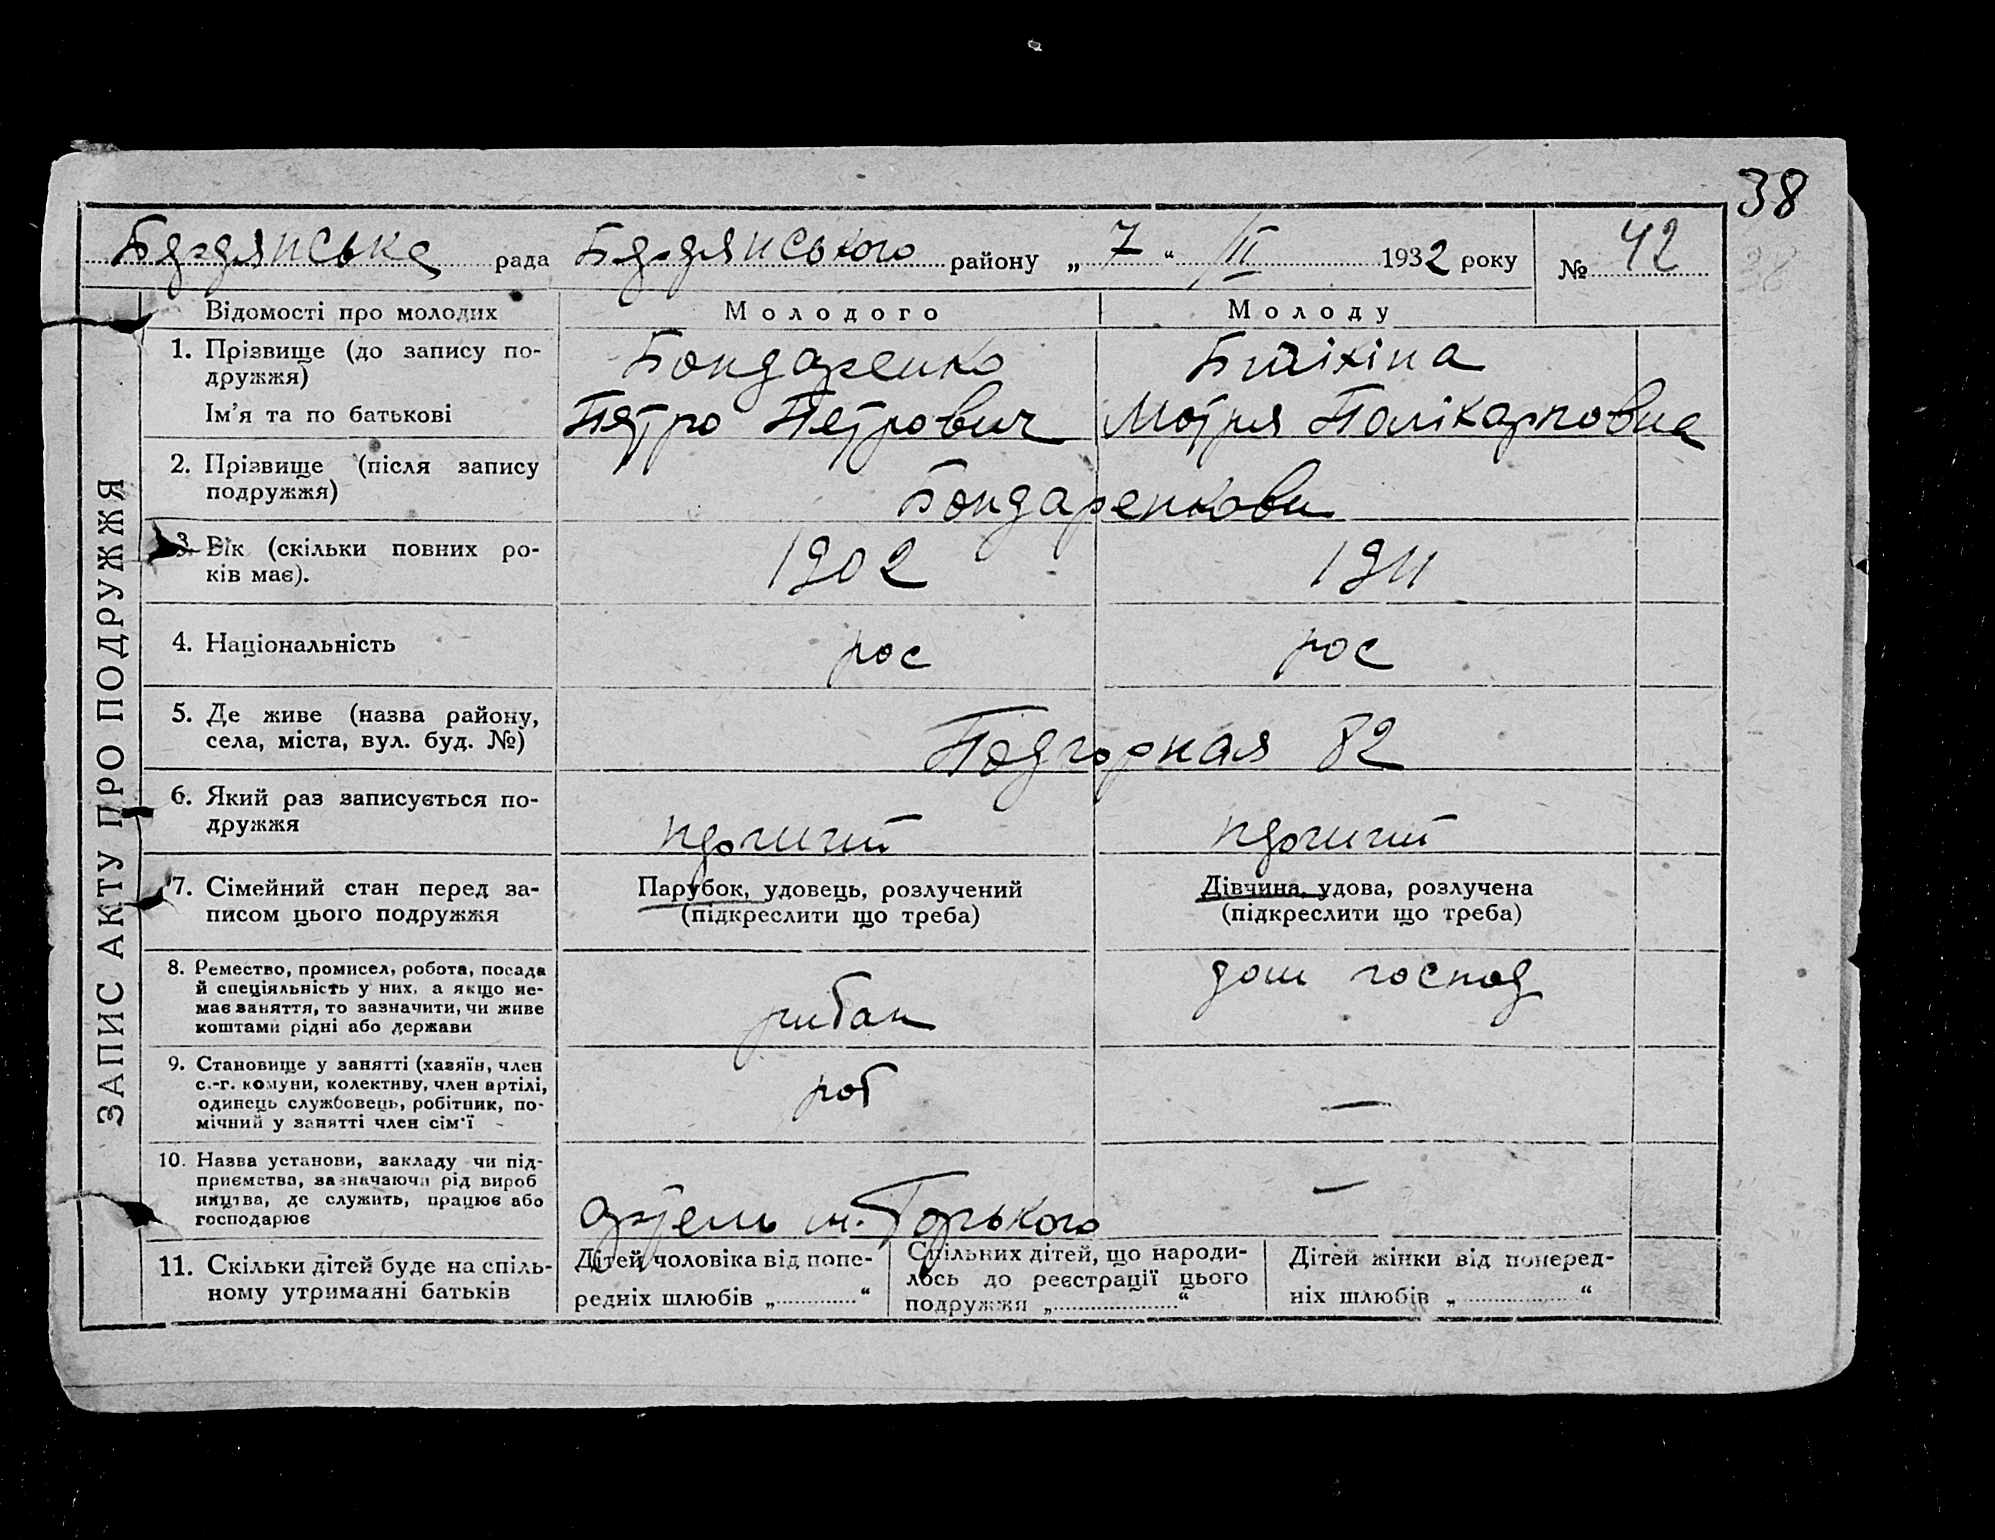 38
Бердянська рада Бердянського району „ 7 “ /II 1932 року № 42
38
ЗАПИС АКТУ ПРО ПОДРУЖЖЯ
Відомості про молодих Молодого Молоду
1. Прізвище (до запису по-
дружжя)
Бондаренко
Ім’я та по батькові
Петро Петрович Мотря Полікарповна
2. Прізвище (після запису
подружжя)
Бондаренкови
3. Вік (скільки повних ро-
ків має).
1902 1911
4. Національність рос рос
5. Де живе (назва району,
села, міста, вул. буд. №)
Подгорная 82
6. Який раз записується по-
дружжя
7. Сімейний стан перед за-
писом цього подружжя
Парубок, удовець, розлучений
(підкреслити що треба)
Дівчина, удова, розлучена
(підкреслити що треба)
8. Ремество, промисел, робота, посада
й спеціяльність у них, а якщо не-
має заняття, то зазначити, чи живе
коштами рідні або держави
рибак
дом господ
9. Становище у занятті (хазяїн, член
с.-г. комуни, колективу, член артілі,
одинець службовець, робітник, по-
мічний у занятті член сім’ї
роб —
10. Назва установи, закладу чи під-
приємства, зазначаючи рід вироб
ництва, де служить, працює або
господарює
артель им. Горького —
11. Скільки дітей буде на спіль-
ному утриманні батьків
Дітей чоловіка від попе-
редніх шлюбів „ “
Спільних дітей, що народи-
лось до реєстрації цього
подружжя „ “
Дітей жінки від поперед-
ніх шлюбів „ “